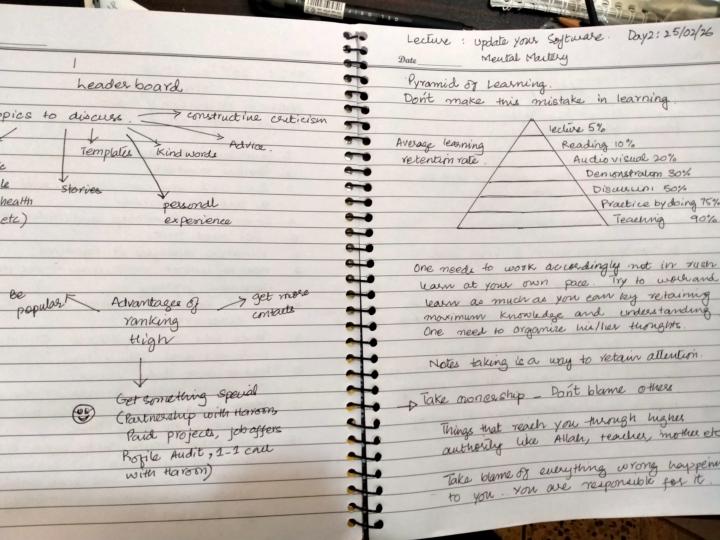 Leaderboard
opics to discuss. → constructive criticism
Templates
Kind words
Advice.
Stories
health
etc)
personal
experience
Be
popular
Advantages of
ranking
High
get more
contacts
Get something special
(Partnership with Haroon,
Paid projects, job offers
Profile Audit, 1-1 call
with Haroon)
Lecture : update your Software. Day2: 25/02/26
Date
Mental Mastery
Pyramid of Learning.
Don't make this mistake in learning.
Average learning
retention rate.
lecture 5%
Reading 10%
Audio visual 20%
Demonstration 30%
Discussion 50%
Practice by doing 75%
Teaching 90%
One needs to work accordingly not in rush
learn at your own pace. Try to work and
learn as much as you can by retaining
maximum knowledge and understanding
One need to organize his/her thoughts.
Notes taking is a way to retain attention.
→ Take ownership - Don't blame others
Things that reach you through higher
authority like Allah, teacher, mother etc
Take blame of everything wrong happen
to you. You are responsible for it.